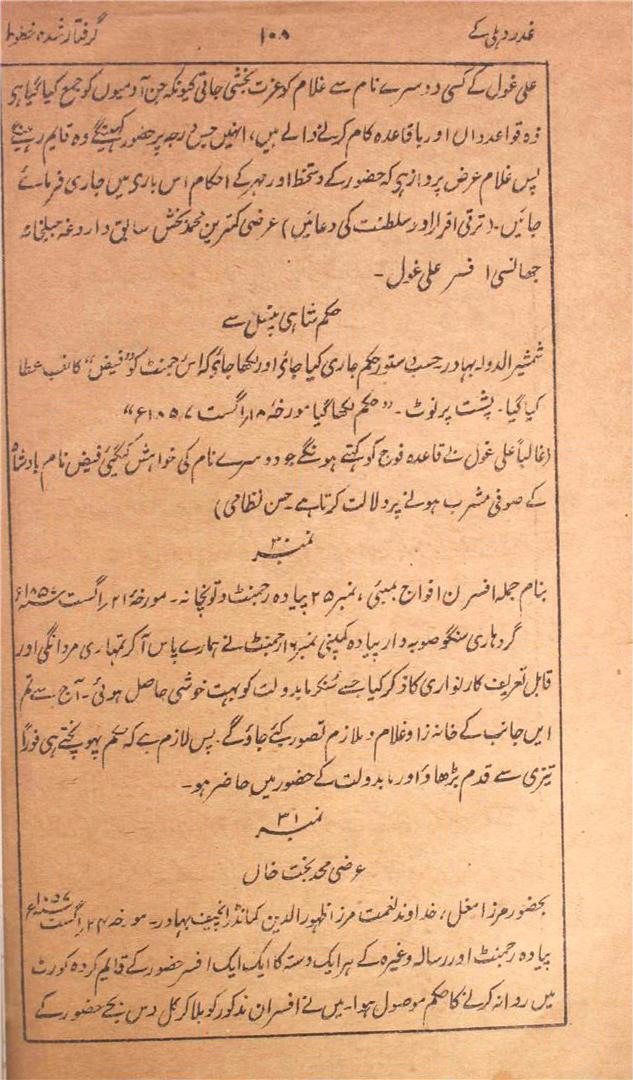 غدر دہلی کے ۱۰۸ گرفتار شدہ خطوط
علی غول کے کسی دوسرے نام سے غلام کو عزت بخشی جاتی کیونکہ جن آدمیوں کو جمع کیا گیا ہی
وہ قواعد داں اور باقاعدہ کام کرنے والے ہیں، انہیں جس درجہ پر حضور کہینگے وہ قایم رہینگے
پس غلام عرض پرداز ہی کہ حضور کے دستخط اور مہر کے احکام اس باری میں جاری فرمائے
جائیں۔ (ترقی اقرار اور سلطنت کی دعائیں) عرضی کمترین محمد بخش سابق داروغہ جیلخانہ
جھانسی افسر علی غول۔
حکم شاہی پنسل سے
شمشیر الدولہ بہادر۔ حسب دستور حکم جاری کیا جائے اور لکھا جائے کہ اس رجمنٹ کو "فیض" کا لقب عطا
کیا گیا۔ پشت پر نوٹ۔ "حکم لکھا گیا مورخہ ۱۸ راگست ۱۸۵۷ء"
(غالباً علی غول بے قاعدہ فوج کو کہتے ہونگے جو دوسرے نام کی خواہش کیگئی فیض نام بادشاہ
کے صوفی مشرب ہونے پر دلالت کرتا ہے۔ حسن نظامی)
نمبر ۳۰
بنام جملہ افسرن افواج بمبئی، نمبر ۲۵ پیادہ رجمنٹ و توپخانہ۔ مورخہ ۲۱ راگست ۱۸۵۷ء
گردھاری سنگھ صوبہ دار پیادہ کمپنی نمبر ۱۶ رجمنٹ نے ہمارے پاس آکر تمہاری مردانگی اور
قابل تعریف کارگواری کا ذکر کیا جسے سنکر مابدولت کو بہت خوشی حاصل ہوئی۔ آج سے تم
ایں جانب کے خانہ زاد غلام و ملازم تصور کئے جاؤ گے۔ پس لازم ہے کہ حکم پہونچتے ہی فوراً
تیزی سے قدم بڑھاؤ اور مابدولت کے حضور میں حاضر ہو۔
نمبر ۳۱
عرضی محمد بخت خاں
بحضور مرزا مغل، خداوند نعمت مرزا ظہور الدین کمانڈر انچیف بہادر۔ مورخہ ۲۴ راگست ۱۸۵۷ء
پیادہ رجمنٹ اور رسالہ وغیرہ کے ہر ایک دستہ کا ایک ایک افسر حضور کے قایم کردہ کورٹ
میں روانہ کرنے کا حکم موصول ہوا۔ میں نے افسران مذکور کو بلا کر کل دس بجے حضور کے